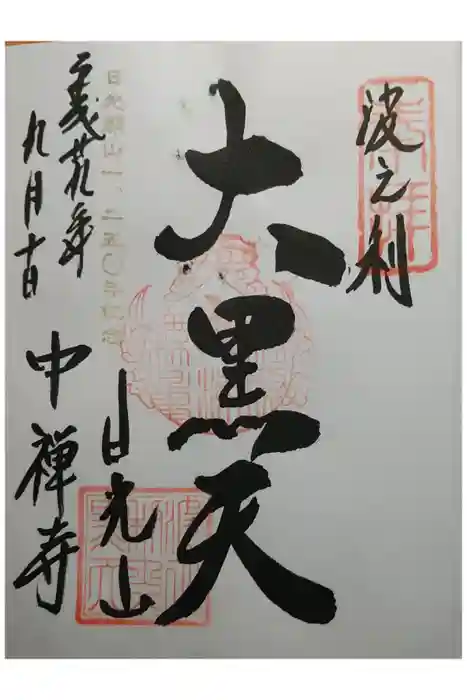 奉拝
波之利
大黒天
日光開山一、二五〇年記念
日光山
平成廿九年
九月十日
中禅寺